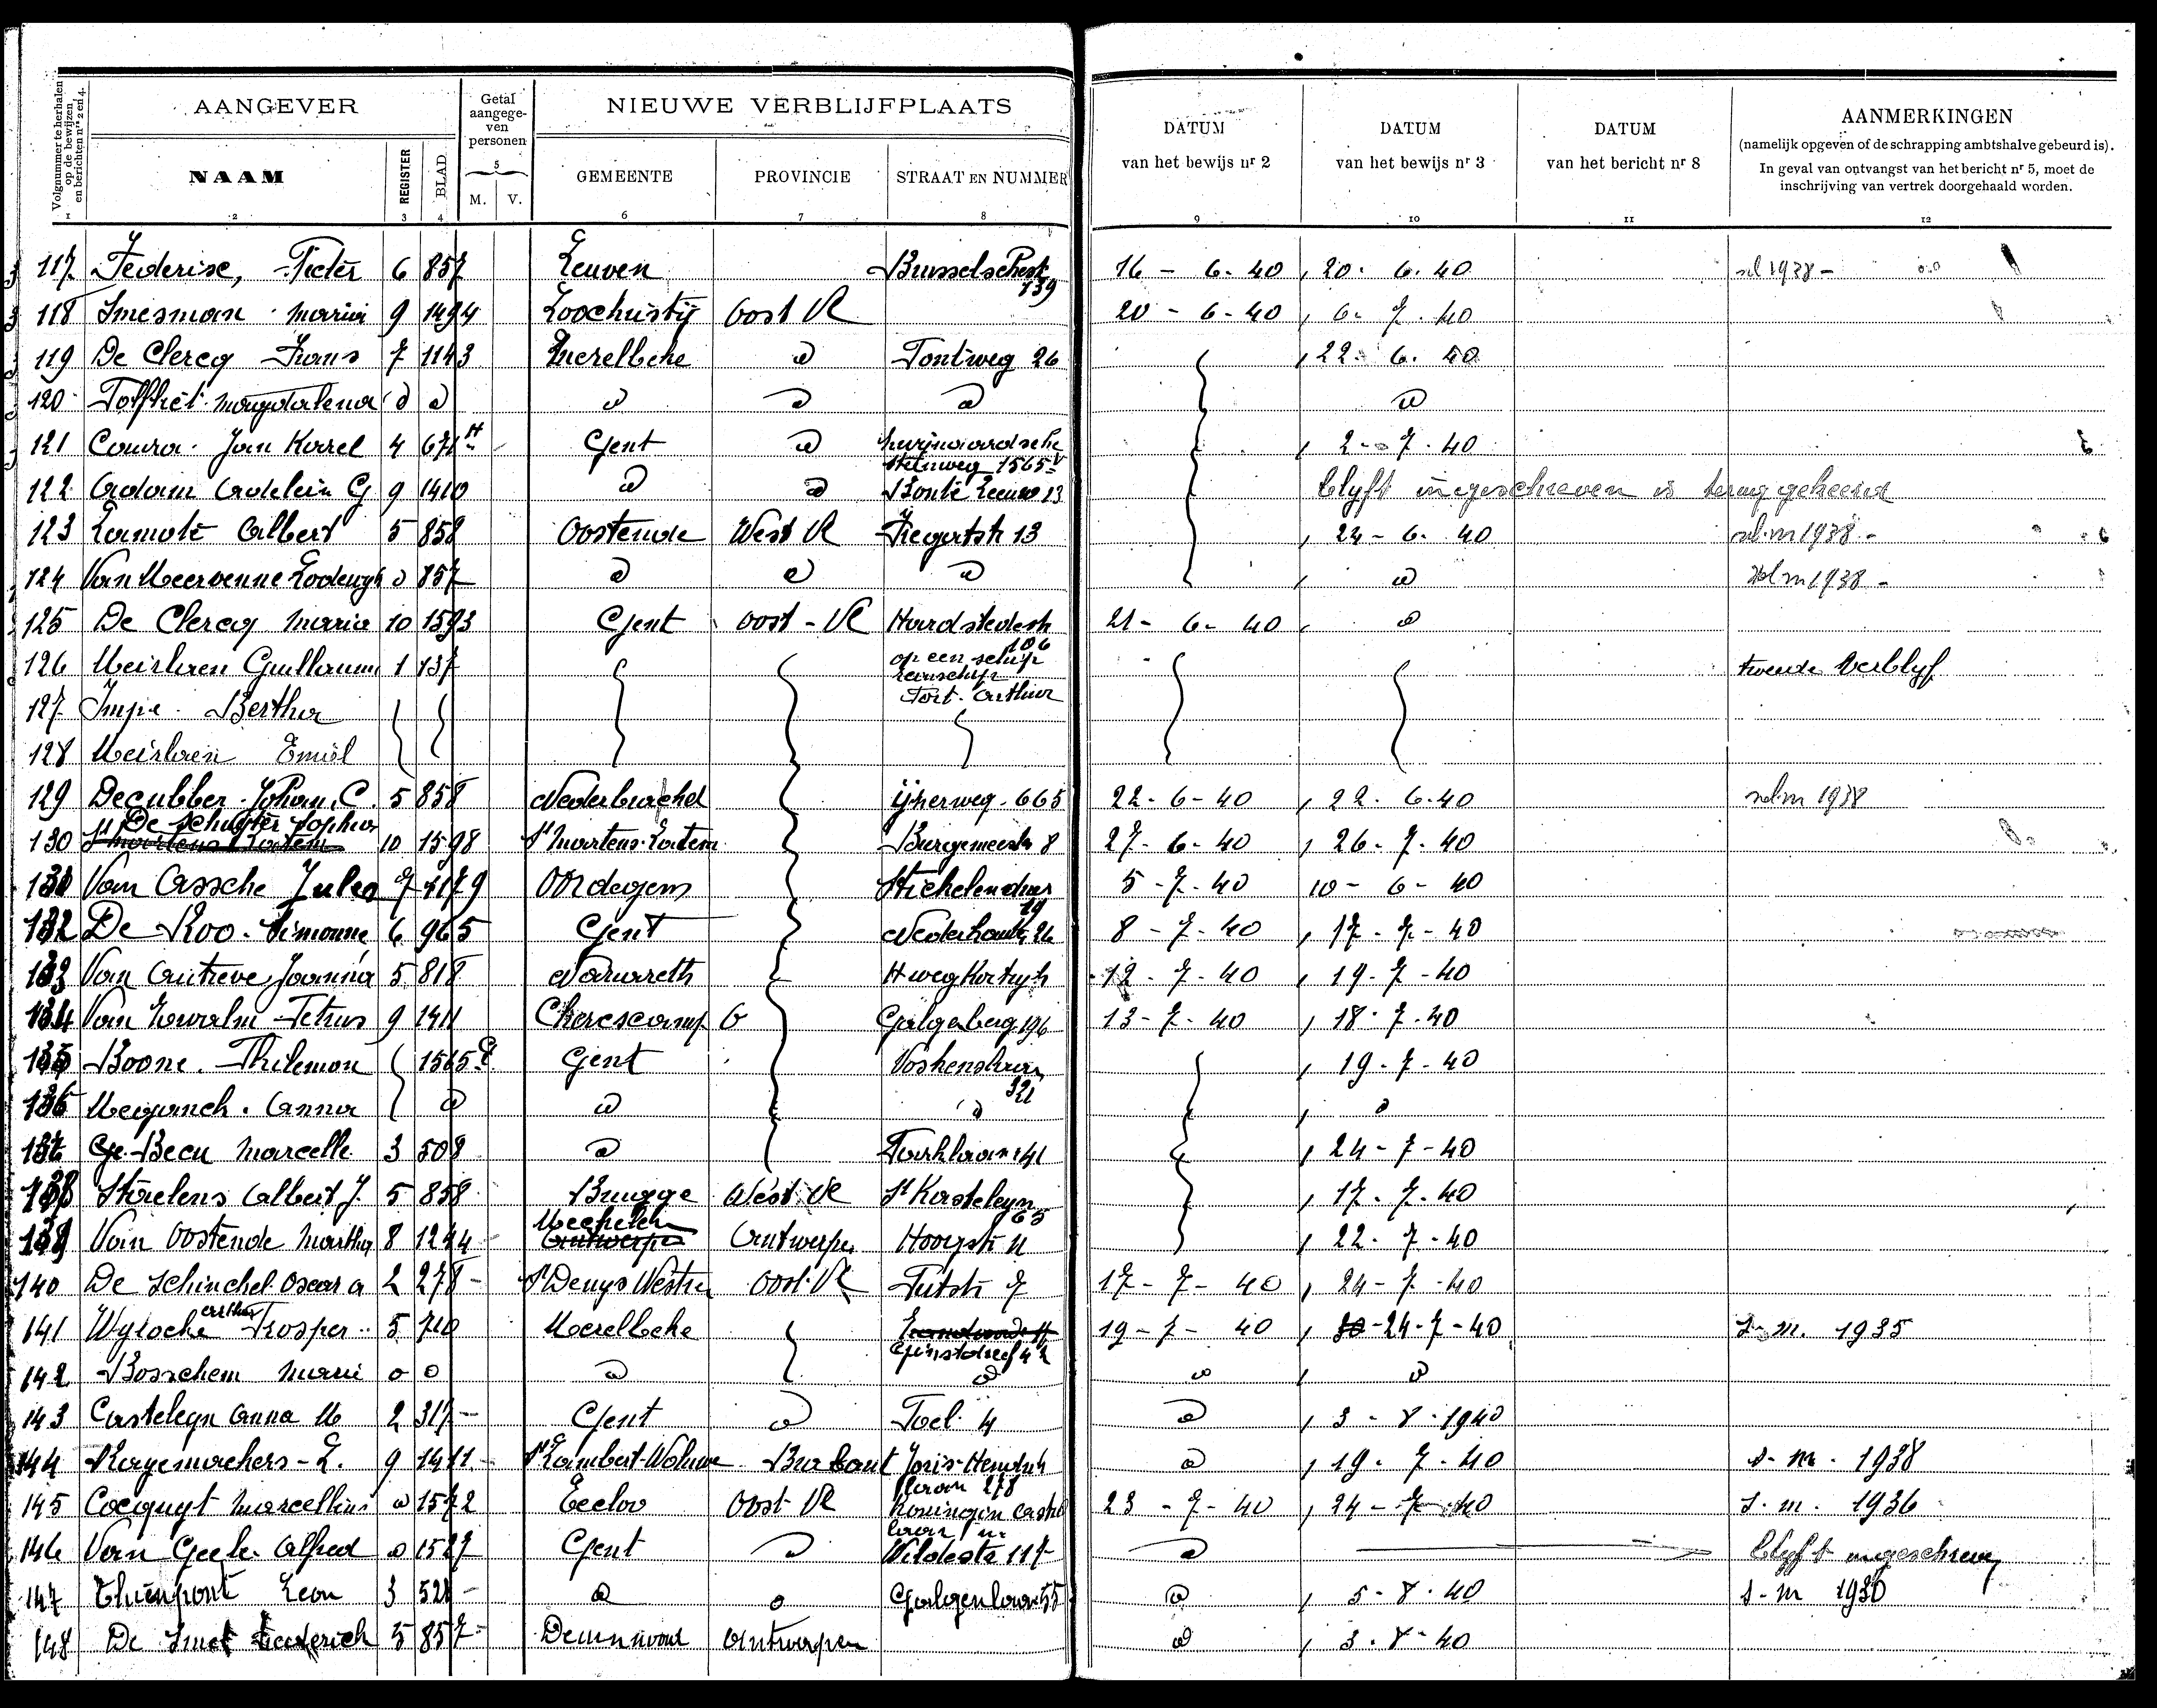 Volgnummer te herhalen op de bewijzen en berichten nrs 2 en 4.
AANGEVER
Getal aangegeven personen
NIEUWE VERBLIJFPLAATS
DATUM van het bewijs nr 2
DATUM van het bewijs nr 3
DATUM van het bericht nr 8
AANMERKINGEN
(namelijk opgeven of de schrapping ambtshalve gebeurd is).
In geval van ontvangst van het bericht nr 5, moet de
inschrijving van vertrek doorgehaald worden.
NAAM REGISTER BLAD M. V. GEMEENTE PROVINCIE STRAAT EN NUMMER
1 2 3 4 5 6 7 8 9 10 11 12
117 Federixe, Pieter 6 857 Leuven 139 16 - 6 - 40 20. 6. 40 1938 -
118 Smesman Maria 9 1494 Loochristij Oost Vl 20 - 6 - 40 6. 7. 40
119 De Clercq Frans 7 1143 Merelbeke d Pontweg 26 22. 6. 40
120 Magdalena d d d d d d
121 Jan Karel 4 671 H Gent d steenweg 1565 2 - 7. 40
122 Adam Adelin G 9 1410 d d Bonte Leeuw 13 blyft ingeschreven is terug gekeerd
123 Lamote Albert 5 858 Oostende West Vl 13 24 - 6. 40 1938 -
124 Van Meervenne Lodewyk d 857 d d d d 1938 -
125 De Clercq Maria 10 1593 Gent oost - Vl 106 21 - 6 - 40 d
126 Meirlaen Guillaume 1 137 op een schip Port. Arthur tweede verblyf
127 Impe. Bertha
128 Meirlaen Emiel
129 Decubber. Johan. C. 5 858 Nederbrachel ijzerweg. 665 22 - 6 - 40 22. 6. 40 1938
130 De Schuyter Sophia 10 1598 St Martens. Latem 8 27 - 6 - 40 26. 7. 40
131 Van Assche Jules 7 1179 Oordegem 19 5 - 7 - 40 10 - 6 - 40
132 De Roo. Simonne 6 965 Gent 26 8 - 7 - 40 17 - 7 - 40
133 Van Autreve Joanna 5 818 Nazareth H weg Kortryk 12 - 7 - 40 19 - 7 - 40
134 Petrus 9 1411 Cherscamp Galgeberg 13 - 7 - 40 18. 7. 40
135 Boone. Philemon 1565 Gent Voskenslaan 19 - 7 - 40
136 Meganck. Anna d d d d
137 De Becu Marcelle 3 508 d Parklaan 141 24 - 7 - 40
138 Staelens Albert J. 5 858 Brugge West Vl St Kasteleyn 65 17. 7. 40
139 Van Oostende Martha 8 1244 Mechelen Antwerpen Antwerpen Hoogstr 11 22. 7 - 40
140 De Schinckel Oscar A 2 278 - St Denys Westrem Oost Vl Putstr 7 17 - 7 - 40 24 - 7 - 40
141 Arthur Prosper 5 710 Merelbeke 19 - 7 - 40 24 - 7 - 40 s - m. 1935
142 Bosschem Marie d d d d d d
143 Casteleyn Anna M 2 317 - Gent d Poel 4 d 3 - 8 - 1940
144 Ragemackers - L. 9 1411 - St Lambert - Woluwe Brabant Joris - Hendrik laan 278 d 19. 7. 40 s - m. 1938
145 Cocquyt Marcellin d 1572 Eecloo Oost Vl Koningin Astrid laan 23 - 7 - 40 24 - 7 - 40 s. m. 1936
146 Van Alfred d 1527 Gent d 117 d blyft ingeschreven
147 Thienpont Leon 3 528 - d d Galgenlaan 55 d 5 - 8 - 40 s - m 1930
148 De Smet Frederick 5 857 - Antwerpen d 3 - 8 - 40